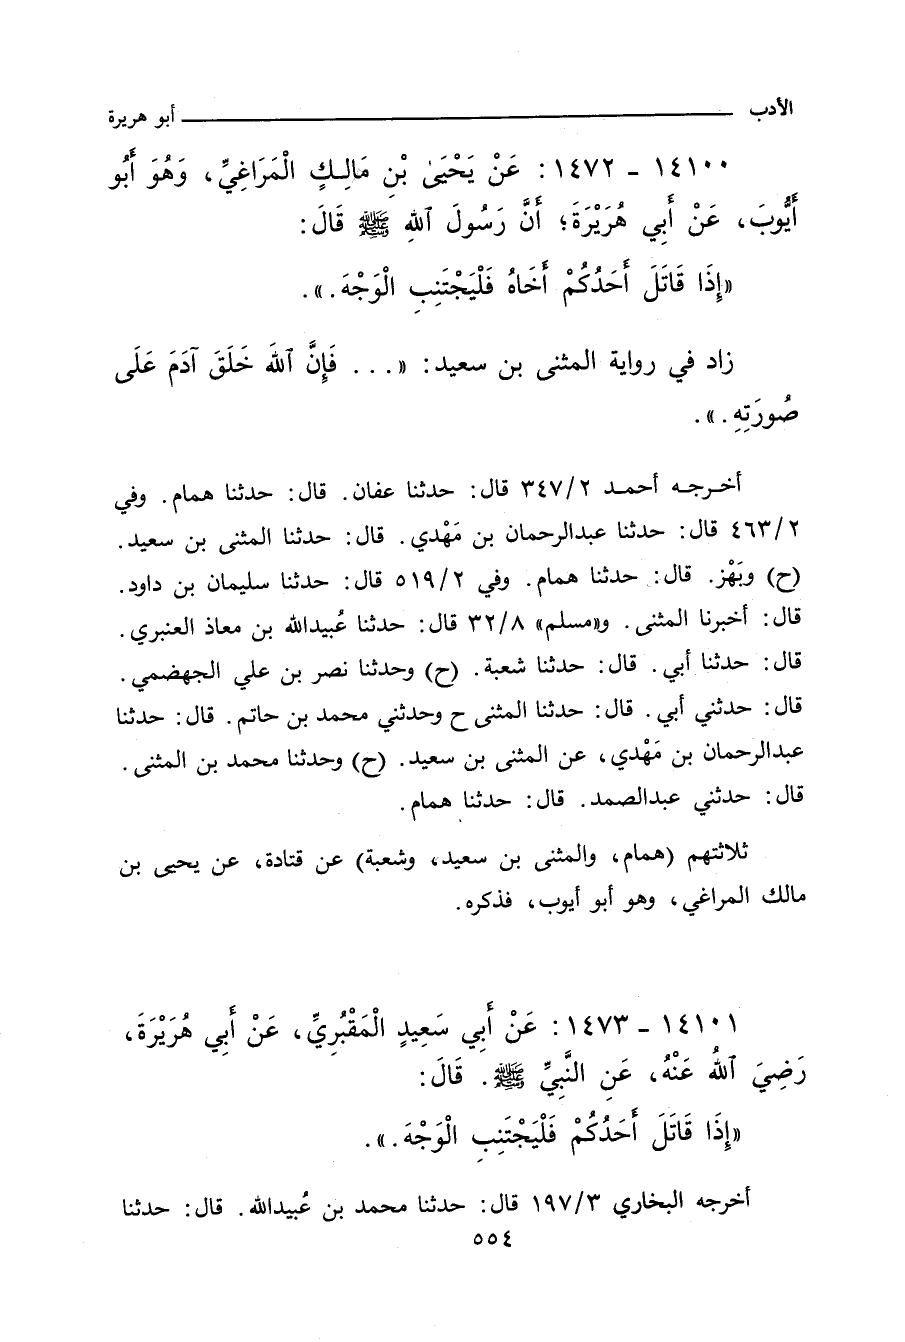 الأدب أبو هريرة
١٤١٠٠ - ١٤٧٢: عَنْ يَحْيَىٰ بْنِ مَالِكٍ الْمَرَاغِيِّ، وَهُوَ أَبُو
أَيُّوبَ، عَنْ أَبِي هُرَيْرَةَ؛ أَنَّ رَسُولَ ٱللهِ ﷺ قَالَ:
«إِذَا قَاتَلَ أَحَدُكُمْ أَخَاهُ فَلْيَجْتَنِبِ الْوَجْهَ.».
زاد في رواية المثنى بن سعيد: «... فَإِنَّ ٱللهَ خَلَقَ آدَمَ عَلَى
صُورَتِهِ.».
أخرجه أحمد ٣٤٧/٢ قال: حدثنا عفان. قال: حدثنا همام. وفي
٤٦٣/٢ قال: حدثنا عبدالرحمان بن مَهْدي. قال: حدثنا المثنى بن سعيد.
(ح) وبَهْز. قال: حدثنا همام. وفي ٥١٩/٢ قال: حدثنا سليمان بن داود.
قال: أخبرنا المثنى. و«مسلم» ٣٢/٨ قال: حدثنا عُبيدالله بن معاذ العنبري.
قال: حدثنا أبي. قال: حدثنا شعبة. (ح) وحدثنا نصر بن علي الجهضمي.
قال: حدثني أبي. قال: حدثنا المثنى ح وحدثني محمد بن حاتم. قال: حدثنا
عبدالرحمان بن مَهْدي، عن المثنى بن سعيد. (ح) وحدثنا محمد بن المثنى.
قال: حدثني عبدالصمد. قال: حدثنا همام.
ثلاثتهم (همام، والمثنى بن سعيد، وشعبة) عن قتادة، عن يحيى بن
مالك المراغي، وهو أبو أيوب، فذكره.
١٤١٠١ - ١٤٧٣: عَنْ أَبِي سَعِيدٍ الْمَقْبُرِيِّ، عَنْ أَبِي هُرَيْرَةَ،
رَضِيَ ٱللهُ عَنْهُ، عَنِ النَّبِيِّ ﷺ. قَالَ:
«إِذَا قَاتَلَ أَحَدُكُمْ فَلْيَجْتَنِبِ الْوَجْهَ.».
أخرجه البخاري ١٩٧/٣ قال: حدثنا محمد بن عُبيدالله. قال: حدثنا
٥٥٤